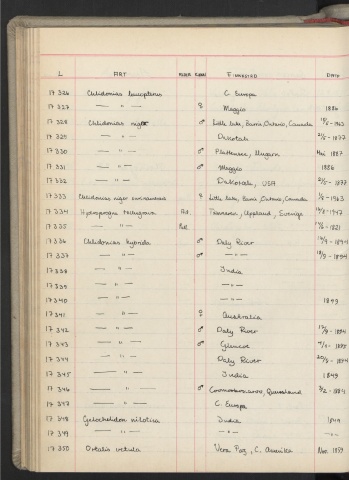 L ART ALDER KJØNN FINNESTED DATO
17326 Chlidonias leucopterus C. Europa
17327 — " — ♀ Maggio 1886
17328 Chlidonias niger ♂ Little Lake, Barrie, Ontario, Canada 1963
17329 — " — Dakota 1877
17330 — " — ♂ Plattensee, Ungarn Mai 1887
17331 — " — ♂ Maggio 1886
17332 — " — Dakota, USA 1877
17333 Chlidonias niger surinamensis ♀ Little Lake, Barrie, Ontario, Canada 1/6 - 1963
17334 Hydroprogne Ad. Uppland, Sverige 1947
17335 — " — Pull. 1921
17336 Chlidonias hybrida ♂ Daly River 1894
17337 — " — ♂ — " — 18/9 - 1894
17338 — " — India
17339 — " — — " —
17340 — " — — " — 1899
17341 — " — ♀ Australia
17342 — " — ♂ Daly River 1894
17343 — " — ♂ Glencoe 1895
17344 — " — Daly River 20/8 - 1894
17345 — " — India 1848
17346 — " — ♂ Queensland 3/2 - 1884
17347 — " — C. Europa
17348 Gelochelidon nilotica India 1849
17349 — " — — " — — " —
17350 Ortalis vetula Vera Paz, C. Amerika Nov. 1859